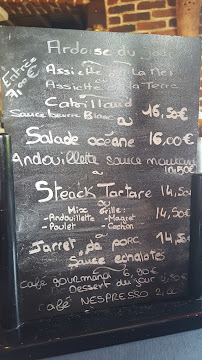 Ardoise du jour
Entrée
7,00€
Assiette de la Mer
Assiette de la Terre
Cabillaud
Sauce beurre Blanc 16,50€
ou
Salade océane 16,00€
Andouillette sauce moutard
10,50€
ou
Steack Tartare 14,50
ou
Mix Grille:
-Andouillette -Magret 14,50€
-Poulet -Cochon
ou
Jarret de porc 14,50
Sauce echalotes
café gourmand 6,90€
Dessert du jour
café NESPRESSO